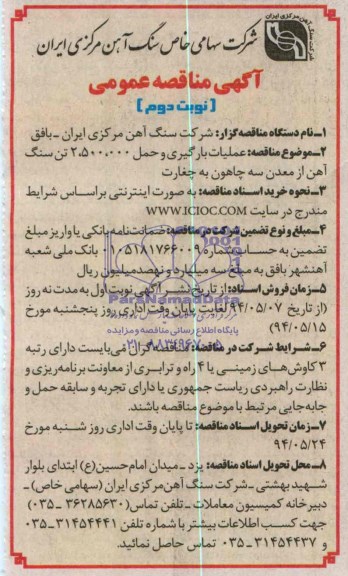 شرکت سنگ آهن مرکزی ایران
شرکت سهامی خاص سنگ آهن مرکزی ایران
آگهی مناقصه عمومی
(نوبت دوم)
۱ـ نام دستگاه مناقصه گزار: شرکت سنگ آهن مرکزی ایران ـ بافق
۲ـ موضوع مناقصه: عملیات بارگیری و حمل ۲،۵۰۰،۰۰۰ تن سنگ
آهن از معدن سه چاهون به چغارت
۳ـ نحوه خرید اسناد مناقصه: به صورت اینترنتی براساس شرایط
مندرج در سایت WWW.ICIOC.COM
۴ـ مبلغ و نوع تضمین شرکت در مناقصه: ضمانت نامه بانکی یا واریز مبلغ
تضمین به حساب شماره ۰۱۰۵۱۸۱۷۶۶۰۰۹ بانک ملی شعبه
آهنشهر بافق به مبلغ سه میلیارد و نهصد میلیون ریال
۵ـ زمان فروش اسناد: از تاریخ نشر آگهی نوبت اول به مدت نه روز
(از تاریخ ۹۴/۰۵/۰۷ لغایت پایان وقت اداری روز پنجشنبه مورخ
۹۴/۰۵/۱۵)
۶ـ شرایط شرکت در مناقصه: مناقصه گران می بایست دارای رتبه
۳ کاوش های زمینی یا ۴ راه و ترابری از معاونت برنامه ریزی و
نظارت راهبردی ریاست جمهوری یا دارای تجربه و سابقه حمل و
جابه جایی مرتبط با موضوع مناقصه باشند.
۷ـ زمان تحویل اسناد مناقصه: تا پایان وقت اداری روز شنبه مورخ
۹۴/۰۵/۲۴
۸ـ محل تحویل اسناد مناقصه: یزد ـ میدان امام حسین(ع) ابتدای بلوار
شهید بهشتی ـ شرکت سنگ آهن مرکزی ایران (سهامی خاص) ـ
دبیرخانه کمیسیون معاملات ـ تلفن تماس (۳۶۲۸۵۶۳۰ ـ ۰۳۵)
جهت کسب اطلاعات بیشتر با شماره تلفن ۳۱۴۵۴۴۴۱ ـ ۰۳۵
و ۳۱۴۵۴۴۳۷ ـ ۰۳۵ تماس حاصل نمائید.
ParsNamadData
پایگاه اطلاع رسانی مناقصه و مزایده